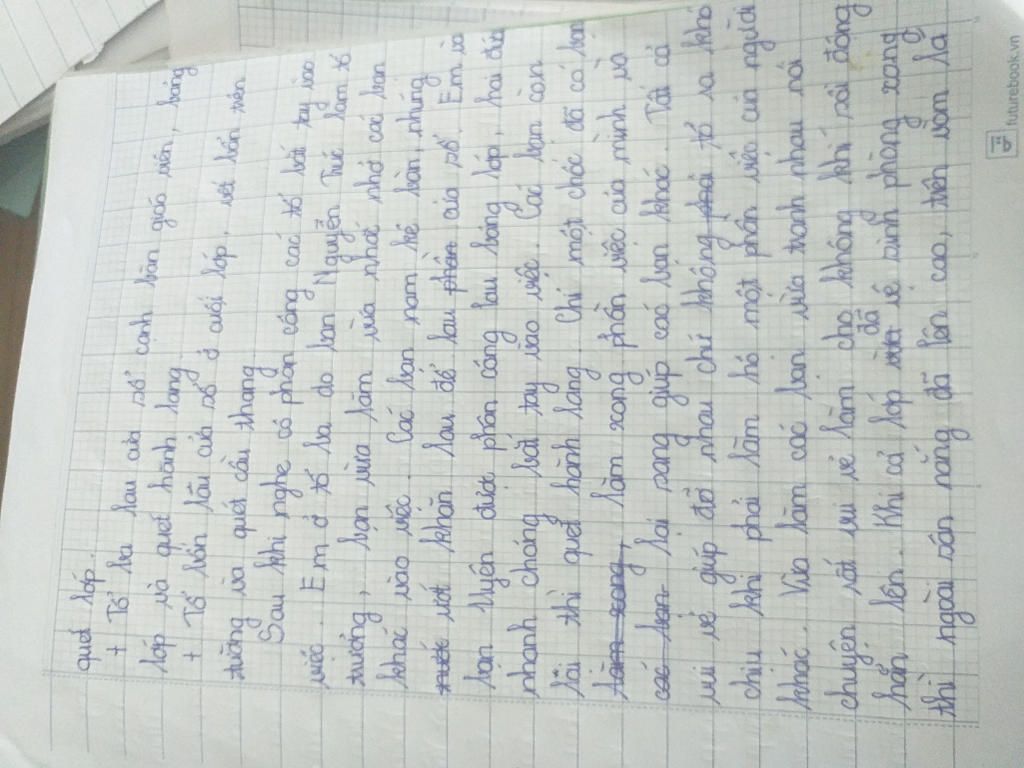 quét lớp.
+ Tổ ba lau cửa sổ cạnh bàn giáo viên, bảng
lớp và quét hành lang.
+ Tổ bốn lau cửa sổ ở cuối lớp, vết bẩn trên
tường và quét cầu thang.
Sau khi nghe cô phân công các tổ bắt tay vào
việc. Em ở tổ ba do bạn Nguyễn Tuệ làm tổ
trưởng, bạn vừa làm vừa nhắc nhở các bạn
khác vào việc. Các bạn nam kê bàn, nhúng
nước vắt khăn lau để lau phần cửa sổ. Em và
bạn Uyên được phân công lau bảng lớp, hai đứa
nhanh chóng bắt tay vào việc. Các bạn còn
lại thì quét hành lang. Chỉ một chốc đã có bạn
làm xong làm xong phần việc của mình và
các bạn lại sang giúp các bạn khác. Tất cả
vui vẻ giúp đỡ nhau chứ không phải tỏ ra khó
chịu khi phải làm hộ một phần việc của người
khác. Vừa làm các bạn vừa tranh nhau nói
chuyện rất vui vẻ làm cho không khí sôi động
hẳn lên. Khi cả lớp vừa đã vệ sinh phòng xong
thì ngoài sân nắng đã lên cao, trên vòm lá
futurebook.vn